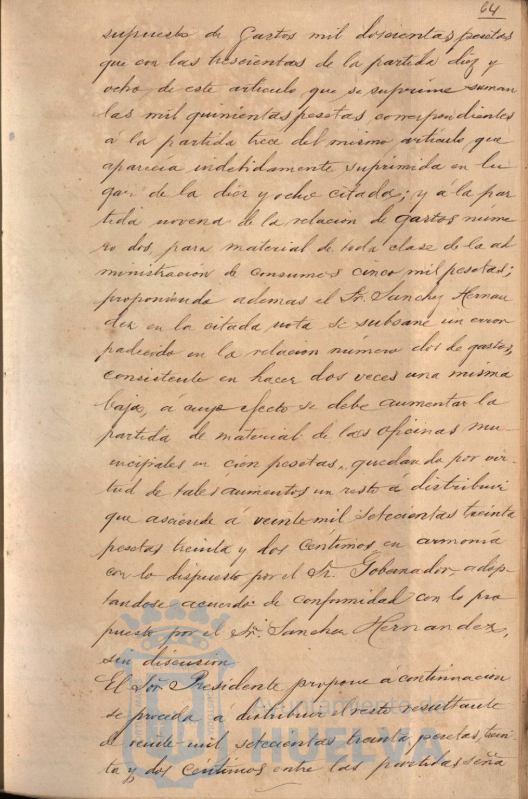 64
supuesto de gastos mil doscientas pesetas
que con las trescientas de la partida diez y
ocho de este articulo que se suprime suman
las mil quinientas pesetas correspondientes
á la partida trece del mismo articulo que
aparecia indebidamente suprimida en lu
gar de la diez y ocho citada; y á la par
tida novena de la relacion de gastos núme
ro dos, para material de toda clase de la ad
ministración de consumos cinco mil pesetas;
proponiendo ademas el Sr. Sanchez Hernan
dez en la citada nota se subsane un error
padecido en la relacion número dos de gastos,
consistente en hacer dos veces una misma
baja, á cuyo efecto se debe aumentar la
partida de material de las oficinas mu
nicipales en cien pesetas, quedando por vir
tud de tales aumentos un resto á distribuir
que asciende á veinte mil setecientas treinta
pesetas treinta y dos céntimos en armonia
con lo dispuesto por el Sr. Gobernador, adop
tandose acuerdo de conformidad con lo pro
puesto por el Sr. Sanchez Hernandez,
sin discusion.
El Sor. Presidente propone á continuacion
se proceda á distribuir el resto resultante
de veinte mil setecientas treinta pesetas, trein
ta y dos céntimos entre las partidas seña
Ayuntamiento de
HUELVA